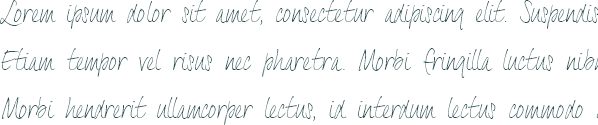 Lorem ipsum dolor sit amet, consectetur adipiscing elit. Suspendis
Etiam tempor vel risus nec pharetra. Morbi fringilla luctus nibh
Morbi hendrerit ullamcorper lectus, id interdum lectus commodo